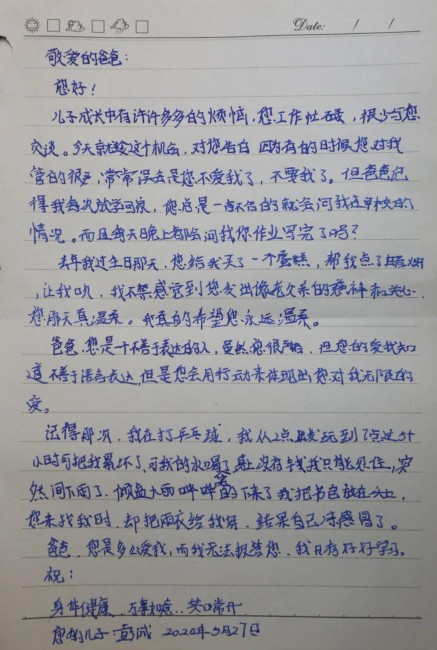 Date: / /
敬爱的爸爸:
您好!
儿子成长中有许许多多的烦恼,您工作忙碌,很少与您
交谈。今天就趁这个机会,对您告白 因为有的时候您对我
管的很严,常常误会是您不爱我了,不要我了。但爸爸记
得我每次放学回家,您总是一声不啃的就会问我在学校的
情况。而且每天晚上都会问我你作业写完了吗?
去年我过生日那天,您给我买了一个蛋糕,帮我点了蜡烛
,让我吹,我不禁感觉到您发出像老父亲的精神和关心,
您那天真温柔。我真的希望您永远温柔。
爸爸,您是个不善于表达的人,虽然您很严格,但您的爱我知
道 不善于语言表达,但是您会用行动来体现出您对我无限的
爱。
记得那次,我在打乒乓球,我从2点 玩到7点这5个
小时可把我累坏了,可我的水喝了 没有钱我只能忍住,突
然间下雨了,倾盆大雨哗哗的下来了我把书包放在头上,
您来找我时,却把雨衣给我穿,结果自己淋感冒了。
爸爸,您是多么爱我,而我无法报答您,我只有好好学习。
祝:
身体健康 万事如意..笑口常开
您的儿子·彭斌 2020年5月27日